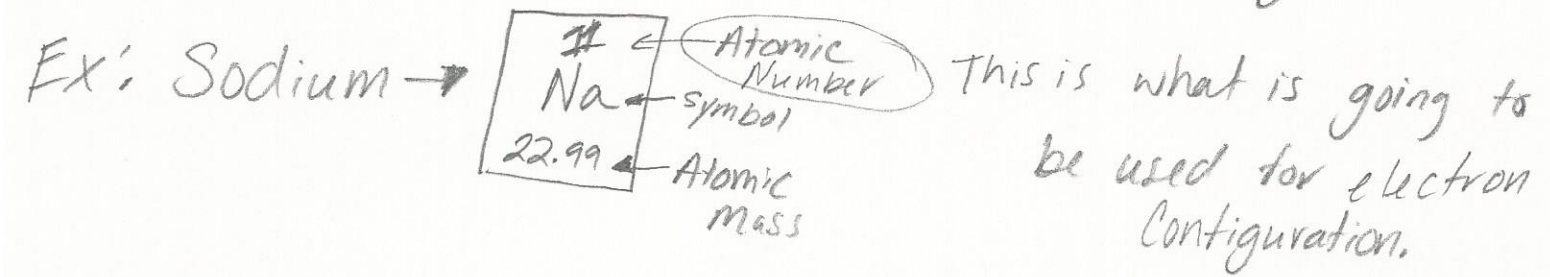 Ex: Sodium → 11 ← Atomic Number
Na ← symbol
22.99 ← Atomic Mass
This is what is going to
be used for electron
Configuration.